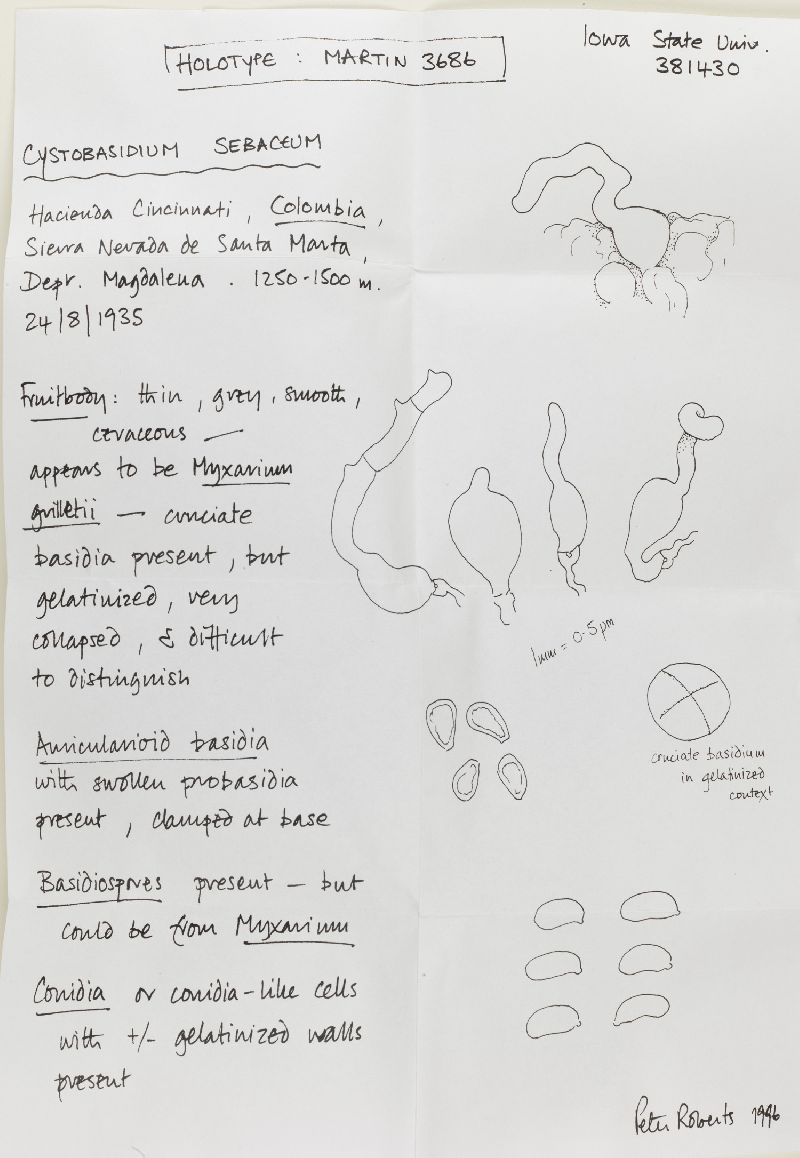 HOLOTYPE : MARTIN 3686
Iowa State Univ.
381430
CYSTOBASIDIUM SEBACEUM
Hacienda Cincinnati, Colombia,
Sierra Nevada de Santa Marta,
Depr. Magdalena. 1250-1500 m.
24/8/1935
Fruitbody: thin, grey, smooth,
ceraceous —
appears to be Myxarium
grilletii — cruciate
basidia present, but
gelatinized, very
collapsed, & difficult
to distinguish
1mm = 0.5 µm
Auricularioid basidia
with swollen probasidia
present, clamped at base
cruciate basidium
in gelatinized
context
Basidiospores present — but
could be from Myxarium
Conidia or conidia-like cells
with +/- gelatinized walls
present
Peter Roberts 1996